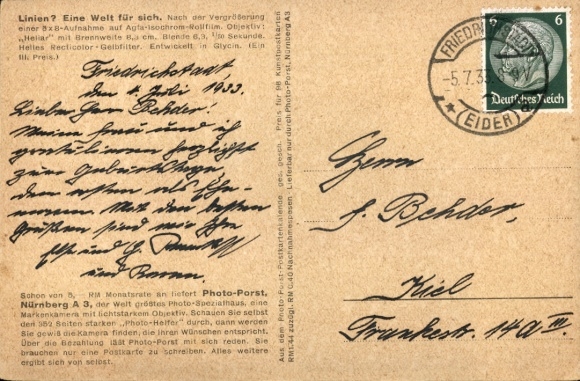 Linien? Eine Welt für sich. Nach der Vergrößerung
einer 3x8-Aufnahme auf Agfa-Isochrom-Rollfilm. Objektiv:
„Heliar" mit Brennweite 8,3 cm. Blende 6,3, Sekunde.
Helles Recticolor-Gelbfilter. Entwickelt in Glycin. (Ein
III. Preis.)
Friedrichstadt,
den 4. Juli 1933.
Lieber Herr Behder!
Meine Frau und ich
gratulieren herzlichst
zum Geburtstage,
dem ersten als Ehe-
mann. Mit den besten
Grüßen sind wir Ihre
und
und Frau.
Schon von 5,— RM Monatsrate an liefert Photo-Porst,
Nürnberg A 3, der Welt größtes Photo-Spezialhaus, eine
Markenkamera mit lichtstarkem Objektiv. Schauen Sie selbst
den 352 Seiten starken „Photo-Helfer" durch, dann werden
Sie gewiß die Kamera finden, die Ihren Wünschen entspricht.
Über die Bezahlung läßt Photo-Porst mit sich reden. Sie
brauchen nur eine Postkarte zu schreiben. Alles weitere
ergibt sich von selbst.
Aus dem Photo-Porst-Postkartenkalender ges. gesch. Preis für 96 Kunstpostkarten
RM 1.44 zuzügl. RM 0.40 Nachnahmespesen. Lieferbar nur durch Photo-Porst, Nürnberg A 3
6 6
Deutsches Reich
FRIEDRICHSTADT
-5.7.33
(EIDER)
Herrn
J. Behder,
Kiel
Frankestr. 14a III.